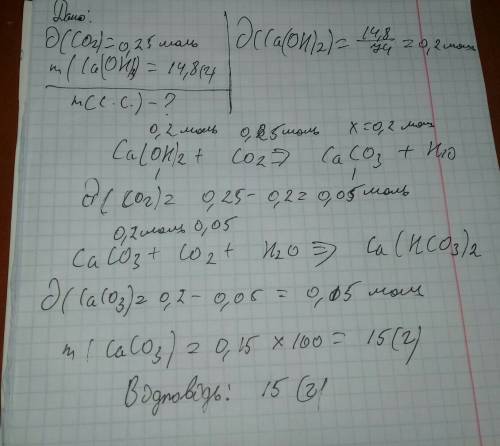 Дано:
∂(CO2)=0,25 моль
∂(Ca(OH)2)= 14,8/74 = 0,2 моль
m(Ca(OH)2) = 14,8(г)
m( .C.) - ?
0,2 моль 0,25 моль x=0,2 моль
Ca(OH)2 + CO2 => CaCO3 + H2O
1 1
∂(CO2)= 0,25-0,2=0,05 моль
0,2 моль 0,05
CaCO3 + CO2 + H2O => Ca(HCO3)2
∂(CaCO3)= 0,2 - 0,05 = 0,15 моль
m(CaCO3) = 0,15 × 100 = 15(г)
Відповідь: 15 (г)